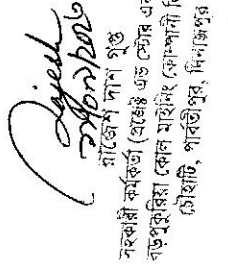 Rajesh
রাজেশ দাশ গুপ্ত
সহকারী কর্মকর্তা (প্রজেক্ট এন্ড স্টোর এন
বড়পুকুরিয়া কোল মাইনিং কোম্পানী লি
চৌহাটি, পার্বতীপুর, দিনাজপুর